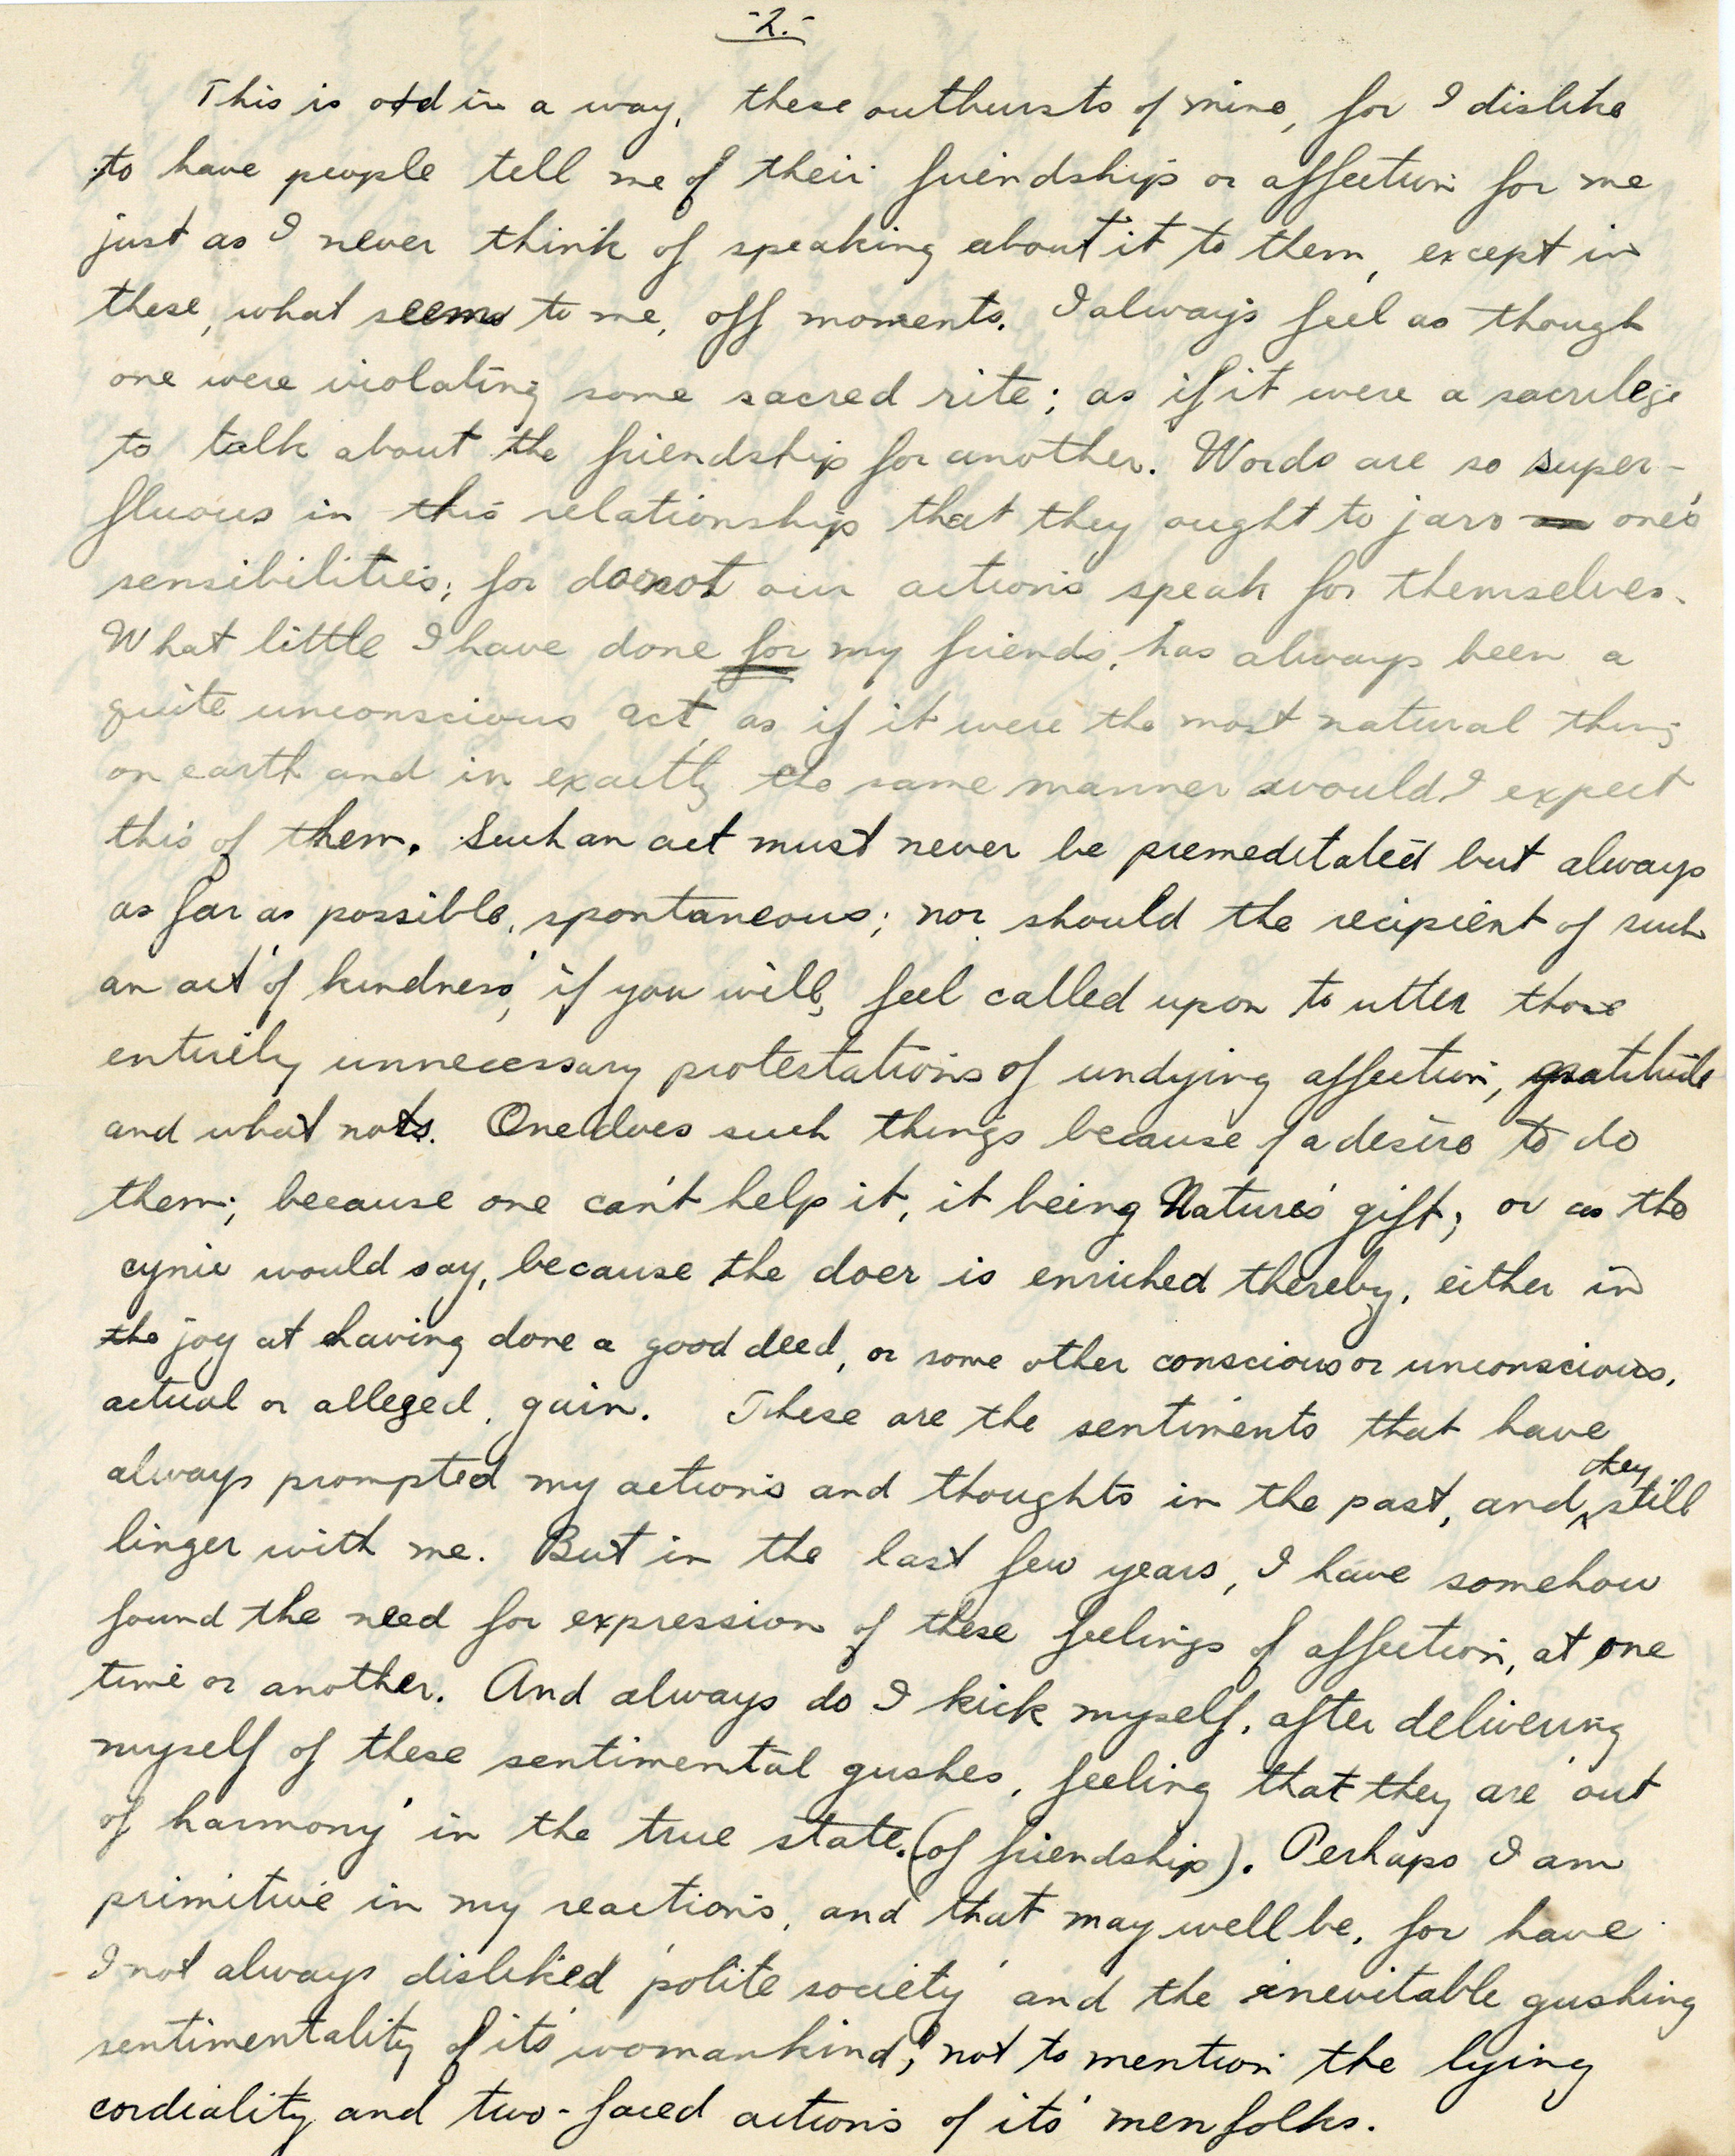 -2.-
This is odd in a way, these outbursts of mine, for I dislike
to have people tell me of their friendship or affection for me
just as I never think of speaking about it to them, except in
these, what seems to me, off moments. I always feel as though
one were violating some sacred rite; as if it were a sacrilege
to talk about the friendship for another. Words are so super-
fluous in this relationship that they ought to jar one's
sensibilities; for do not our actions speak for themselves.
What little I have done for my friends, has always been a
quite unconscious act, as if it were the most natural thing
on earth and in exactly the same manner would I expect
this of them. Such an act must never be premeditated but always
as far as possible, spontaneous; nor should the recipient of such
an act 'of kindness', if you will, feel called upon to utter those
entirely unnecessary protestations of undying affection, gratitude
and what nots. One does such things because of a desire to do
them; because one can't help it, it being Nature's gift; or as the
cynic would say, because the doer is enriched thereby, either in
the joy at having done a good deed, or some other conscious or unconscious,
actual or alleged, gain. These are the sentiments that have
always prompted my actions and thoughts in the past, and they still
linger with me. But in the last few years, I have somehow
found the need for expression of these feelings of affection, at one
time or another. And always do I kick myself, after delivering
myself of these sentimental gushes, feeling that they are 'out
of harmony' in the true state (of friendship). Perhaps I am
primitive in my reactions, and that may well be, for have
I not always disliked 'polite society' and the inevitable gushing
sentimentality of its' womankind, not to mention the lying
cordiality and two-faced actions of its' menfolks.